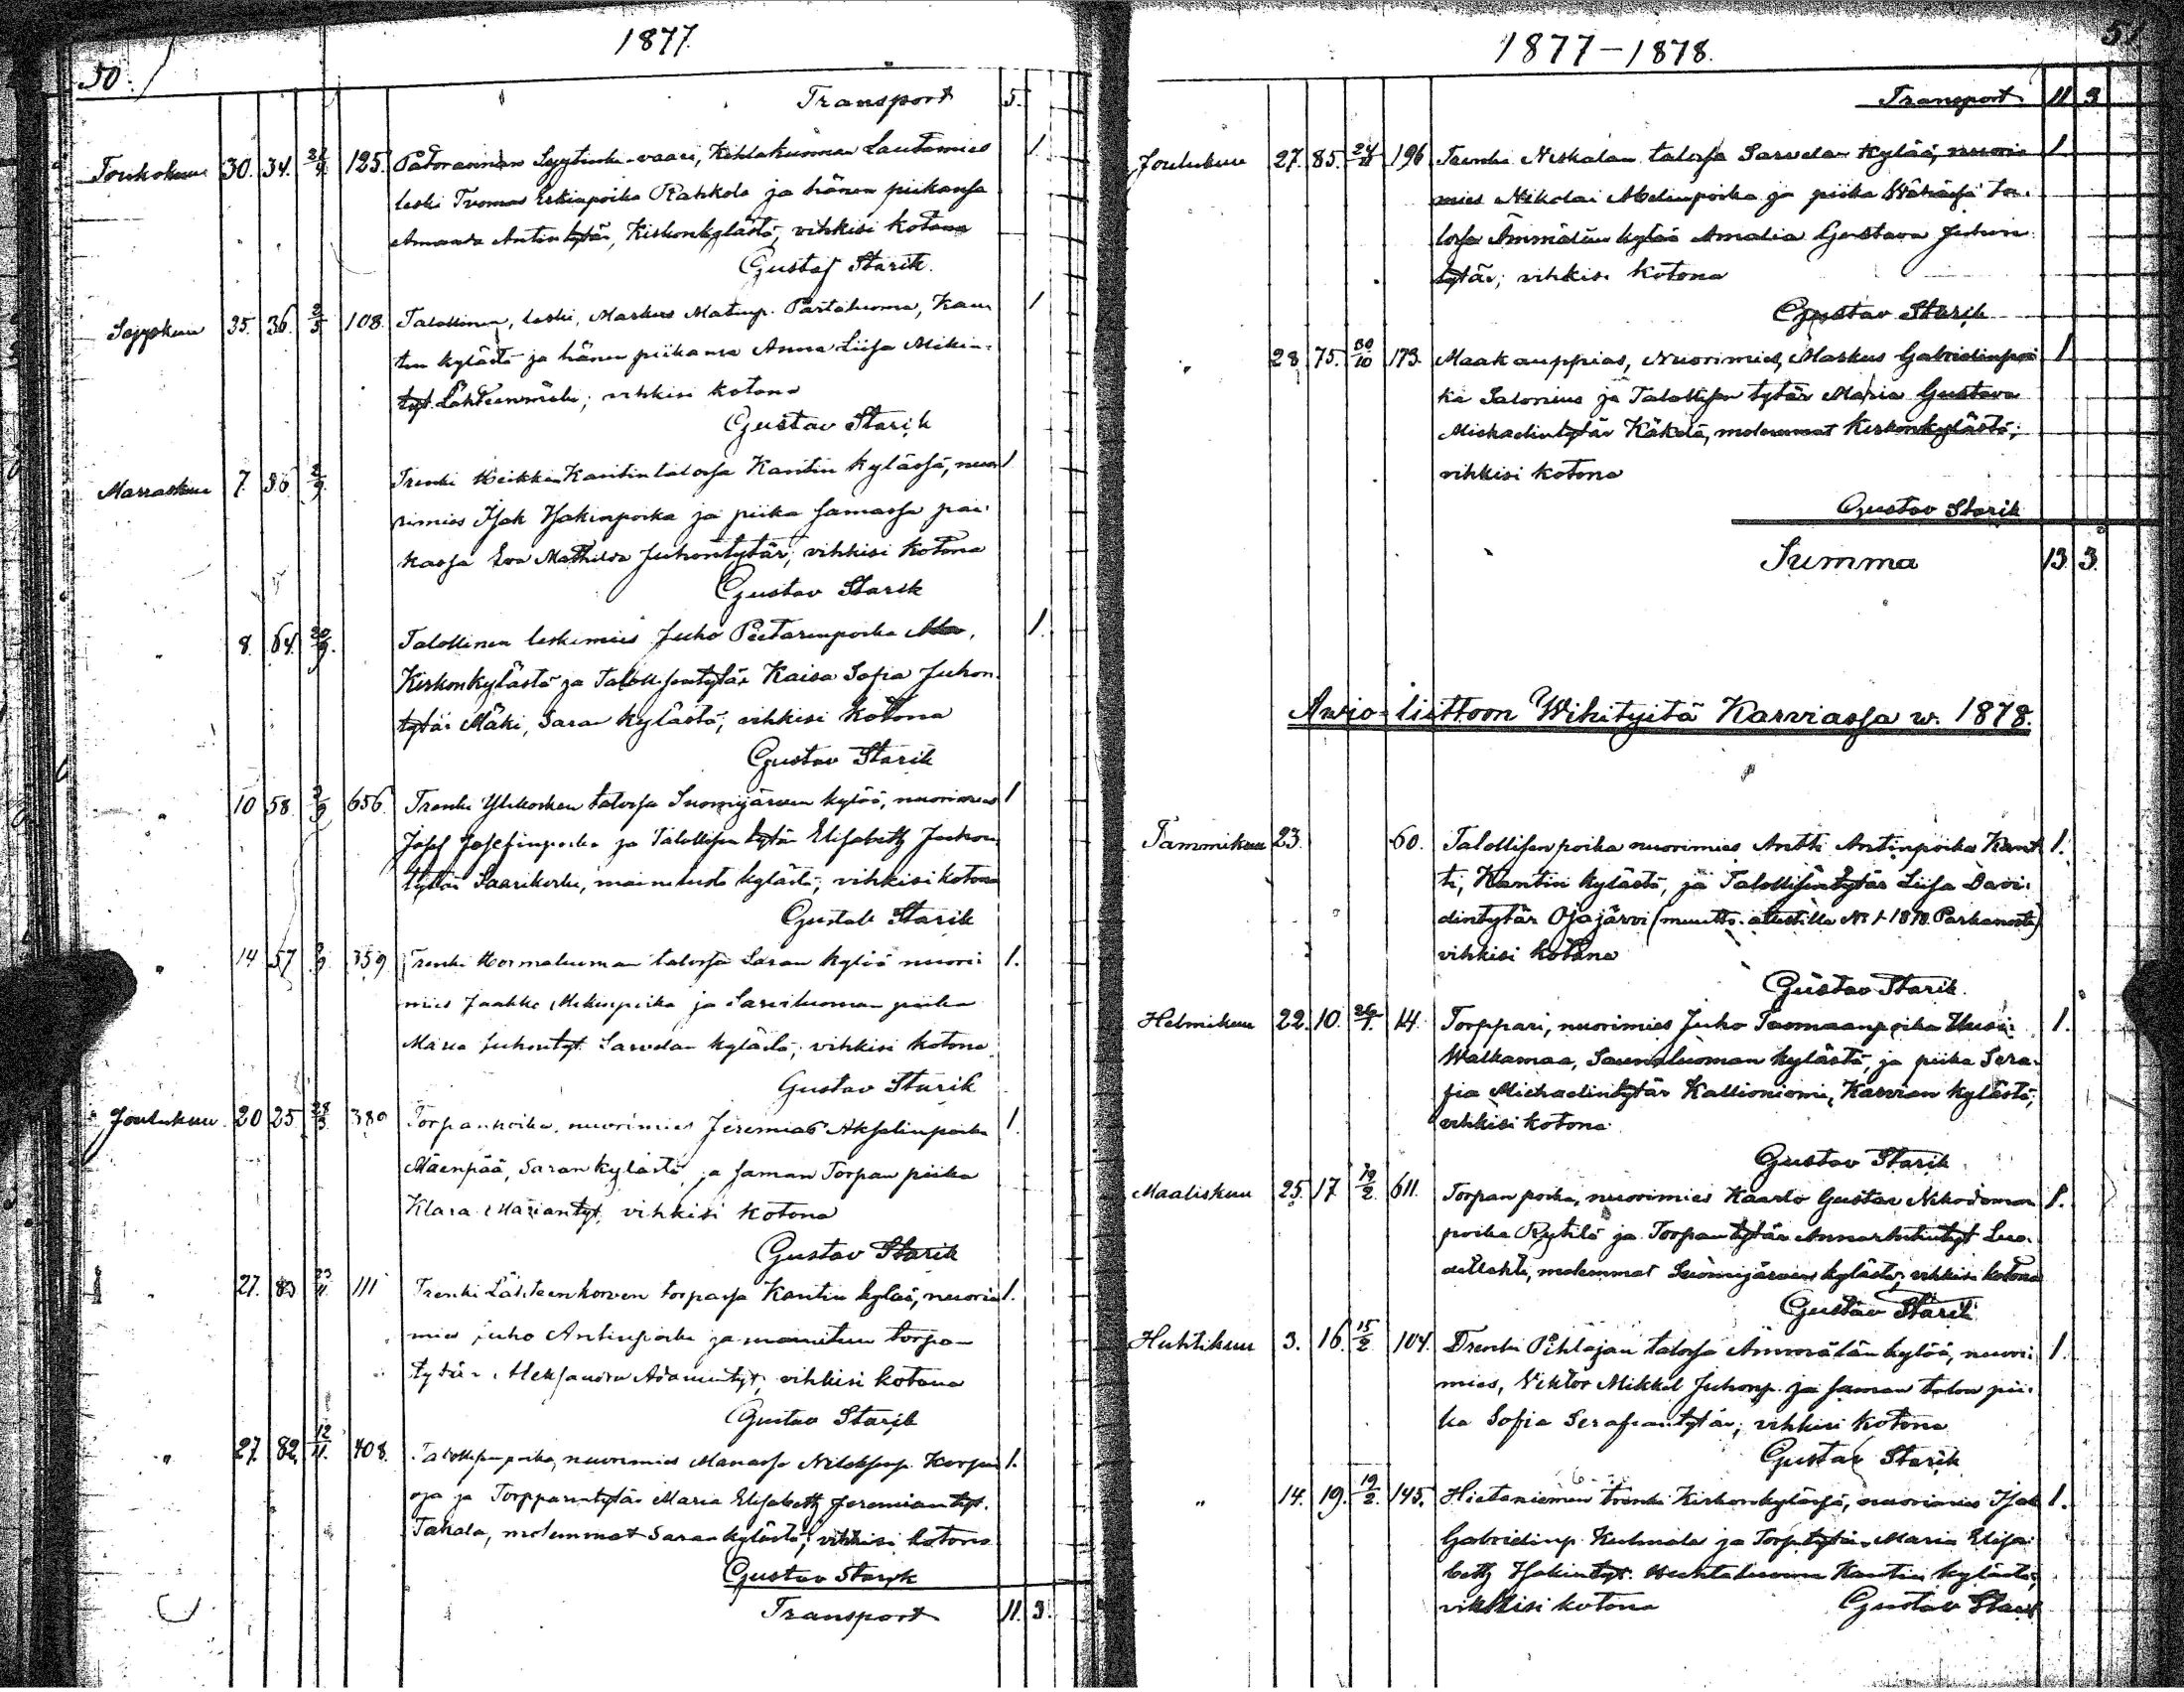 50.
1877.
Transport 5.
Toukokuu 30. 34. 125. Patorannan Syytinki-vaari, Kihlakunnan Lautamies 1
leski Tuomas Erkinpoika Rahkola ja hänen piikansa
Amanda Antintytär, Kirkonkylästä, vihkisi kotona
Gustaf Starik.
Syyskuu 25. 36. 108. Talollinen, leski, Markus Matinp. Partaluoma, Kan 1
tin kylästä ja hänen piikansa Anna Liisa Mikin
tyt. Lähteenmäki; vihkisi kotona
Gustav Starik
Marraskuu 7. 36 2/9 Trenki Heikkin Kantin talossa Kantin kylässä, nuo 1
rimies Isak Isakinpoika ja piika samassa pai
kassa Eva Mathilda Juhontytär; vihkisi kotona
Gustav Starik
" 8. 64. 20/9. Talollinen leskimies Juho Pietarinpoika 1.
Kirkonkylästä ja Talollisentytär Kaisa Sofia Juhon
tytär Mäki, Saran kylästä; vihkisi kotona
Gustav Starik
" 10 58 656. Trenki Ylikosken talossa Suomijärven kylää, nuorimies 1
Josef Josefinpoika ja Talollisen tytär Elisabeth Juhon
tytär Saarikoski, mainitusta kylästä; vihkisi kotona
Gustav Starik
" 14 57 359 Trenki talossa Saran kylää nuori 1.
mies Jaakko Mikinpoika ja Sarviluoman piika
Maria Juhontyt. Sarvelan kylästä; vihkisi kotona
Gustav Starik
Joulukuu 20 25 380 Torpanpoika, nuorimies Jeremias Akselinpoika 1.
Mäenpää, Saran kylästä, ja saman Torpan piika
Klara Mariantyt, vihkisi kotona
Gustav Starik
" 27. 83 23/11 111 Trenki Lähteenkorven torpassa Kantin kylää, nuori 1.
mies Juho Antinpoika ja mainitun torpan
tytär Aleksandra Adamintyt; vihkisi kotona
Gustav Starik
" 27. 82. 12/11. 408. Talollisenpoika, nuorimies Manasse 1.
oja ja Torpparintytär Maria Elisabeth Jeremiantyt.
Takala, molemmat Saran kylästä; vihkisi kotona
Gustav Starik
Transport 11. 3.
51
1877–1878.
Transport 11 3
Joulukuu 27. 85. 24/11 196 Trenki Niskalan talossa Sarvelan kylää, nuori 1
mies Nikolai Abelinpoika ja piika ta
lossa Ämmälän kylää Amalia Gustava Juhon
tytär; vihkisi kotona
Gustav Starik
" 28 75. 30/10 173. Maakauppias, Nuorimies, Markus Gabrielinpoi 1
ka Salonius ja Talollisen tytär Maria Gustava
Michaelintytär Käkelä, molemmat Kirkonkylästä;
vihkisi kotona
Gustav Starik
Summa 13. 3.
Awio-liittoon Wihityitä Karviassa w. 1878.
Tammikuu 23. 60. Talollisen poika nuorimies Antti Antinpoika Kant 1.
ti, Kantin kylästä, ja Talollisentytär Liisa Davi
dintytär Ojajärvi (muutto-atestilla No 1 1878 Parkanosta)
vihkisi kotona
Gustav Starik.
Helmikuu 22. 10. 26/1. 14. Torppari, nuorimies Juho Tuomaanpoika Uusi 1.
Walkamaa, Saunaluoman kylästä, ja piika Sera
fia Michaelintytär Kallioniemi, Karvian kylästä;
vihkisi kotona
Gustav Starik
Maaliskuu 25. 17 19/2. 611. Torpan poika, nuorimies Kaarlo Gustav Nikodemun 1.
poika Rytilä ja Torpantytär Anna Antintyt Luo
delahti, molemmat Suomijärven kylästä; vihkisi kotona
Gustav Starik
Huhtikuu 3. 16. 15/2 104. Drenki Pihlajan talossa Ämmälän kylää, nuori 1.
mies, Viktor Mikkel Juhonp. ja saman talon pii
ka Sofia Serafiantytär; vihkisi kotona
Gustav Starik
" 14. 19. 19/2. 145. Hietaniemen trenki Kirkonkylässä, nuorimies Isak 1.
Gabrielinp. Kulmala ja Torp.tytär Maria Elisa
beth Isakintyt. Kantin kylästä;
vihkisi kotona Gustav Starik